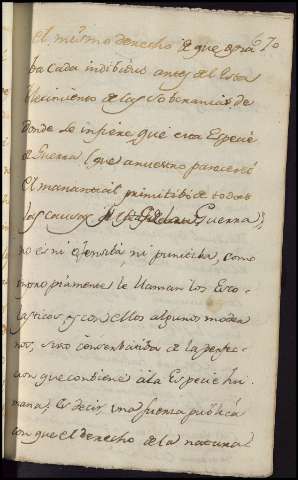 el mismo derecho de que goza 670
ba cada individuo antes del Esta
blecimiento de las soberanias: de
donde se infiere que esta Especie
de Guerra (que a nuestro parecer es
el manantial primitibo de todas
las causas de Guerra)
no es ni ofensiba ni punitiba, como
impropiamente la llaman los Esco
lasticos y con ellos algunos moder
nos, sino conserbatiba de la perfec
cion que conbiene à la Especie hu
mana, Es decir, una fuerza publica
con que el derecho de la natural